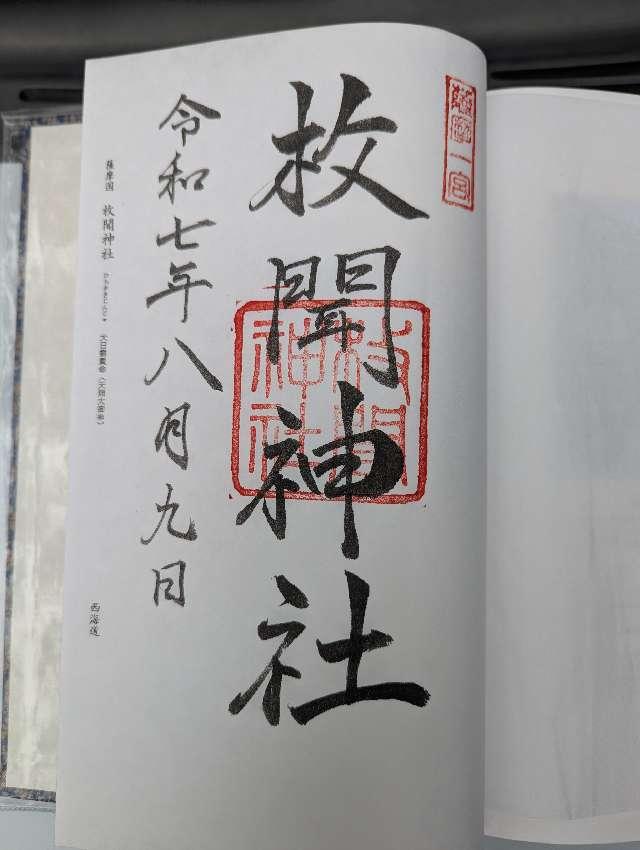 薩摩一宮
枚聞神社
枚聞神社
令和七年八月九日
薩摩国 枚聞神社 ひらききじんじゃ 大日孁貴命（天照大御神）
西海道